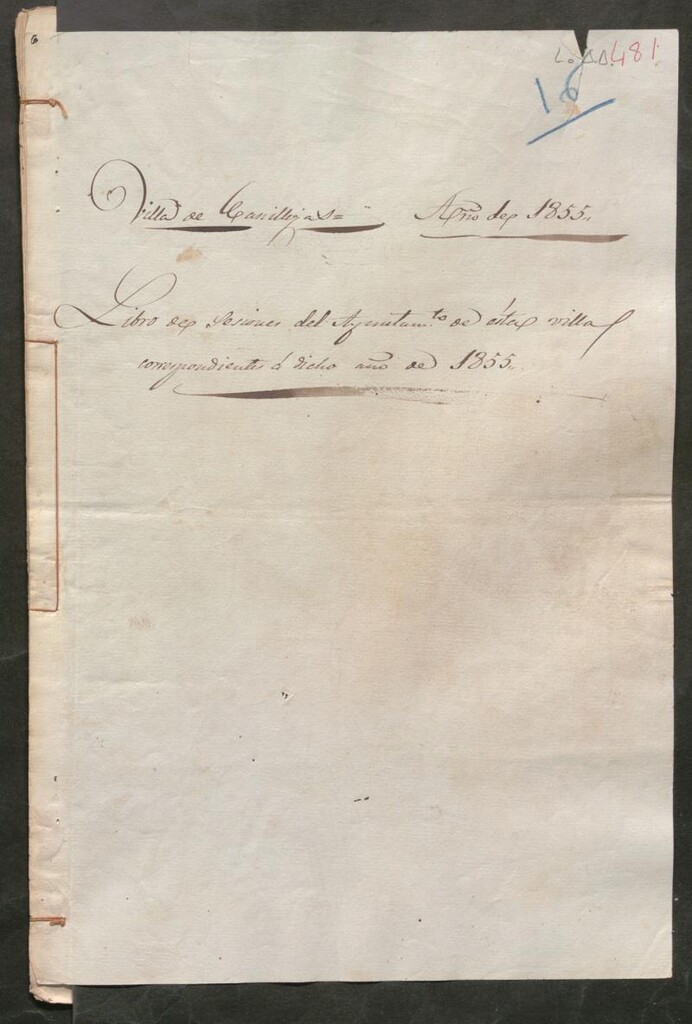 L.A.A.481.
18
Villa de Canillejas= Año de 1855,,
Libro de Sesiones del Ayuntam.to de ésta villa
correspondientes á dicho año de 1855,,